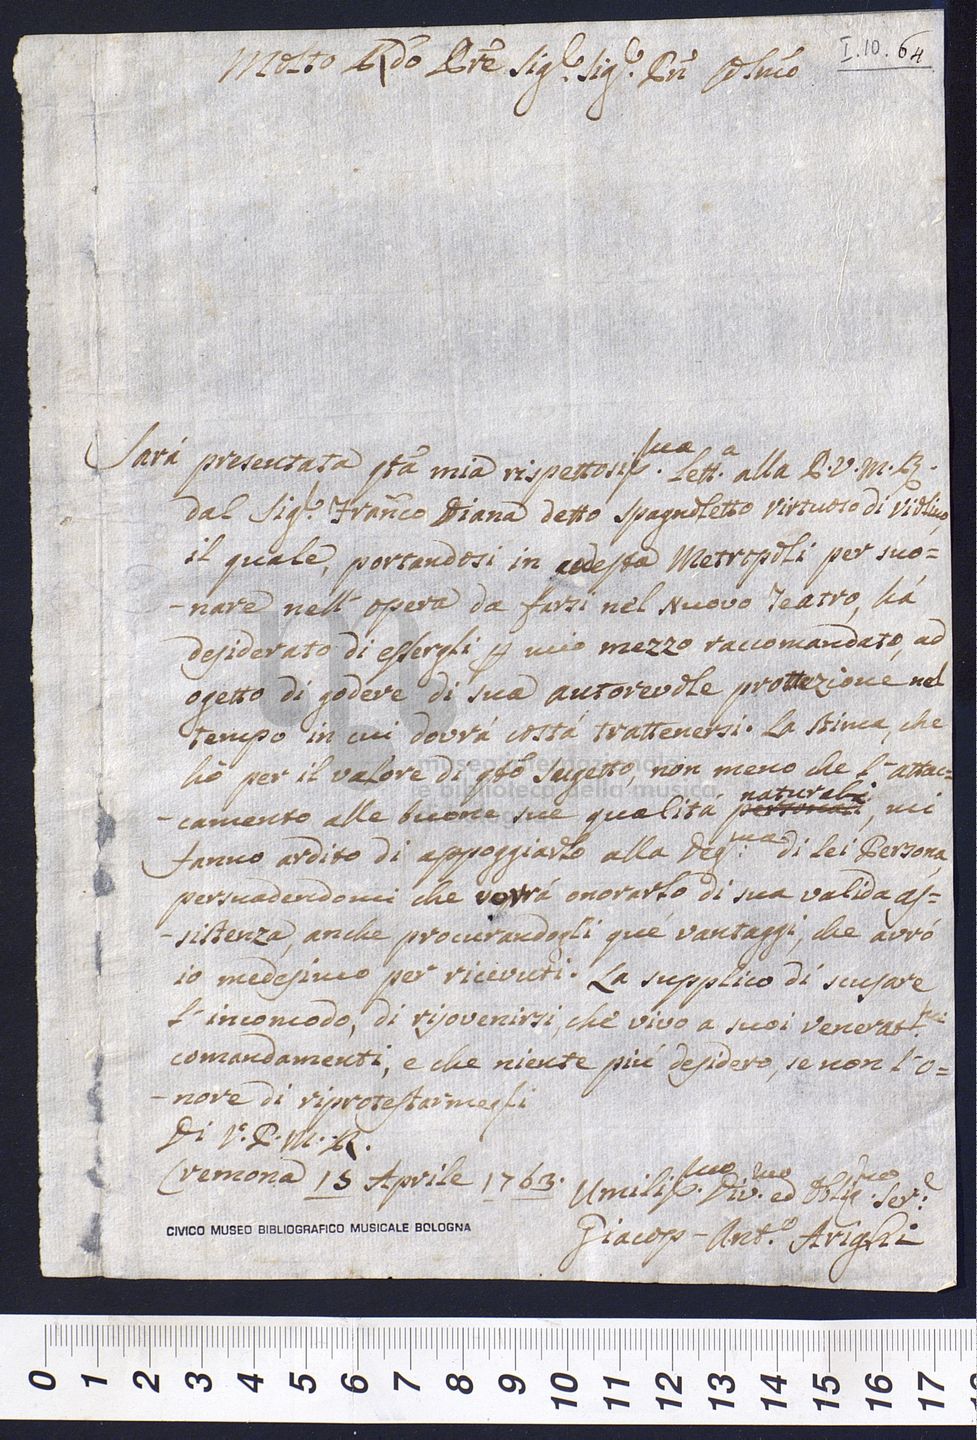 I.10.64
Molto Rdo Pre Sigr. Sigr. Prn Colmo
Sará presentata pta mia rispettosissma. Letta. alla P.V.M.R.
dal Sigr. Franco Diana detto Spagnoletto Virtuoso di Violino,
il quale, portandosi in codesta Metropoli per suo=
-nare nell' opera da farsi nel Nuovo Teatro, há
desiderato di essergli p mio mezzo raccomandato, ad
ogetto di godere di sua autorevole prottezione nel
tempo in cui dovrá costá trattenersi. La Stima, che
hó per il valore di qto Sugetto, non meno che l'attac=
-camento alle buone sue qualitá personali naturali, mi
fanno ardito di appoggiarlo alla Degma. di lei Persona,
persuadendomi che vorrá onorarlo di sua valida as=
-sistenza, anche procurandogli que' vantaggi, che avró
io medesimo per ricevuti. La supplico di scusare
l'incomodo, di risovenirsi, che vivo a suoi veneratmi.
comandamenti, e che niente piú desidero, se non l'O=
-nore di riprotestarmegli
Di V.P.M.R.
Cremona 15 Aprile 1763.
Umilissmo. Divmo. ed Obligmo. Sere.
Giacop-Anto. Arighi
CIVICO MUSEO BIBLIOGRAFICO MUSICALE BOLOGNA
museo internazionale
e biblioteca della musica
0 1 2 3 4 5 6 7 8 9 10 11 12 13 14 15 16 17